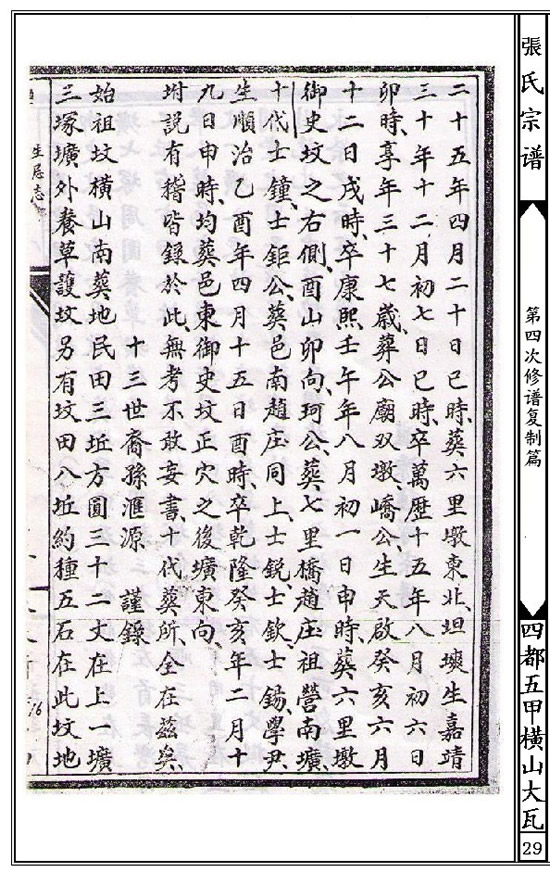 張氏宗谱
第四次修谱复制篇
四都五甲橫山大瓦
29
二十五年四月二十日巳時、葬六里墩東北、坦壞生嘉靖
三十年十二月初七日巳時、卒萬歷十五年八月初六日
卯時、享年三十七歲葬公廟双墩、嶠公、生天啟癸亥六月
十二日戌時、卒康熙壬午年八月初一日申時、葬六里墩
御史坟之右側、酉山卯向、珂公、葬七里橋趙庄祖營南壙、
十代士鐘、士鉅公、葬邑南趙庄同上、士銳、士欽、士錫、學尹
生順治己酉年四月十五日酉時、卒乾隆癸亥年二月十
九日申時、均葬邑東御史坟正穴之後壙東向、
坿説有稽皆録於此、無考不敢妄書、十代葬所、全在兹矣、
十三世裔孫滙源 謹錄
始祖坟橫山南葬地民田三坵方圓三十二丈在上一壙
三塚壙外養草護坟另有坟田八坵約種五石在此坟地
生居志
16